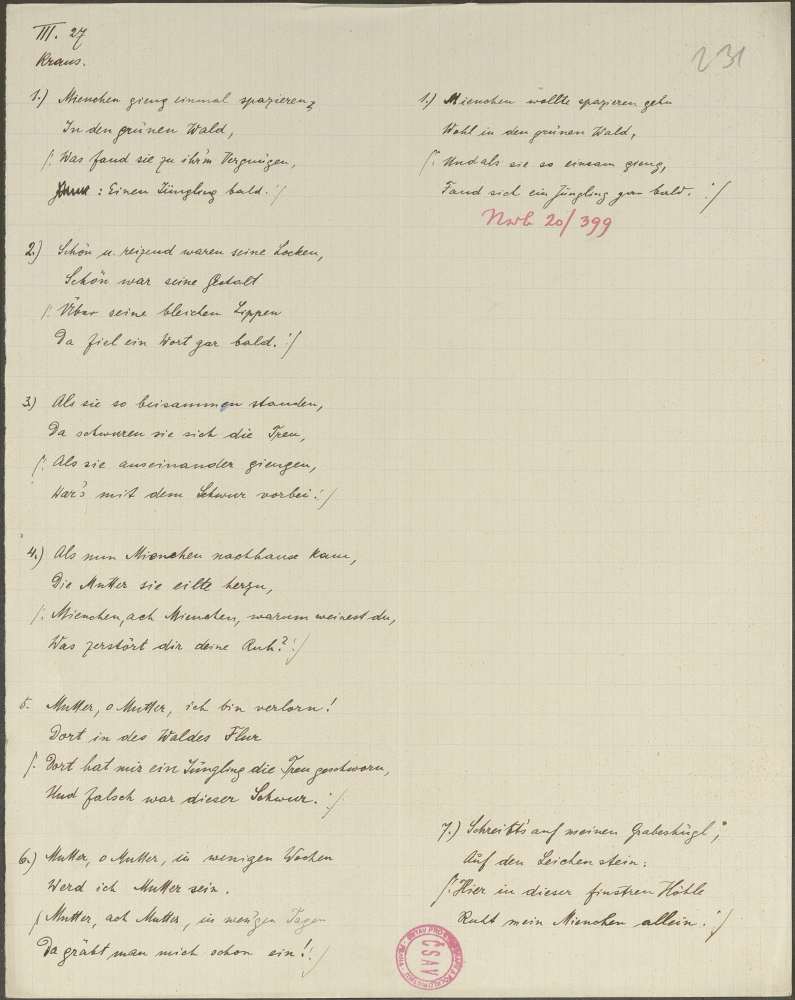 III. 27
Kraus.
231
1.) Mienchen gieng einmal spazieren,
In den grünen Wald,
/: Was fand sie zu ihr'm Vergnügen,
: Einen Jüngling bald. :/
2.) Schön u. reizend waren seine Locken,
Schön war seine Gestalt
/: Über seine bleichen Lippen
Da fiel ein Wort gar bald. :/
3.) Als sie so beisammen standen,
Da schwuren sie sich die Treu,
/: Als sie auseinander giengen,
War's mit dem Schwur vorbei :/
4.) Als nun Mienchen nachhause kam,
Die Mutter sie eilte herzu,
/: Mienchen, ach Mienchen, warum weinest du,
Was zerstört dir deine Ruh? :/
5. Mutter, o Mutter, ich bin verlorn!
Dort in des Waldes Flur
/: Dort hat mir ein Jüngling die Treu geschworn,
Und falsch war dieser Schwur. :/
6.) Mutter, o Mutter, in wenigen Wochen
Werd ich Mutter sein.
/ Mutter, ach Mutter, in wen'gen Tagen
Da gräbt man mich schon ein! :/
1.) Mienchen wollte spazieren gehn
Wohl in den grünen Wald,
/: Und als sie so einsam gieng,
Fand sich ein Jüngling gar bald. :/
20/399
7.) Schreibt's auf meinen Grabeshügl,
Auf den Leichenstein:
/: Hier in dieser finstren Höhle
Ruht mein Mienchen allein. :/
ČSAV